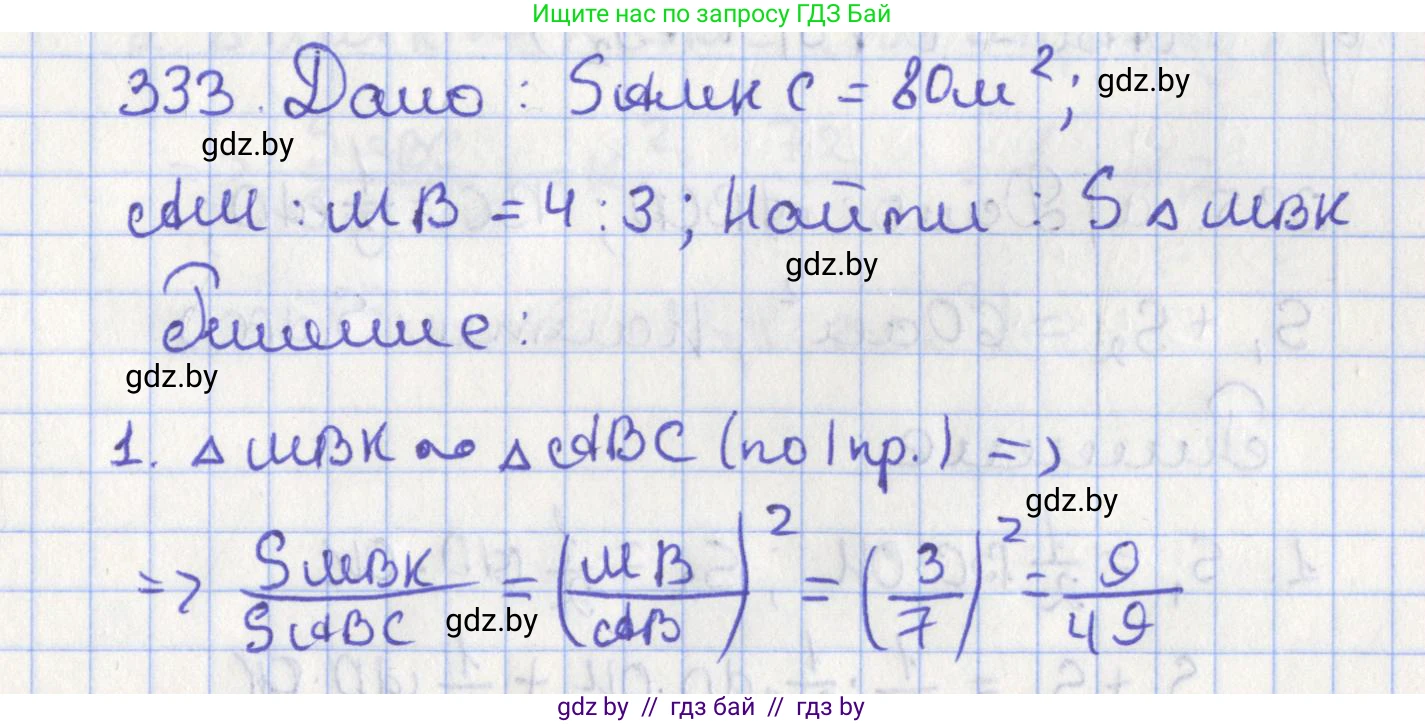 Ищите нас по запросу ГДЗ Бай
333. Дано : SАМКС = 80м²; gdz.by
gdz.by
АМ : МВ = 4 : 3; Найти : S△МВК
gdz.by
Решение:
gdz.by
1. △МВК ∾ △АВС (по I пр.) =>
gdz.by
=> SМВК/SАВС = (МВ/АВ)² = (3/7)² = 9/49
gdz.by
gdz.by // гдз бай // гдз by